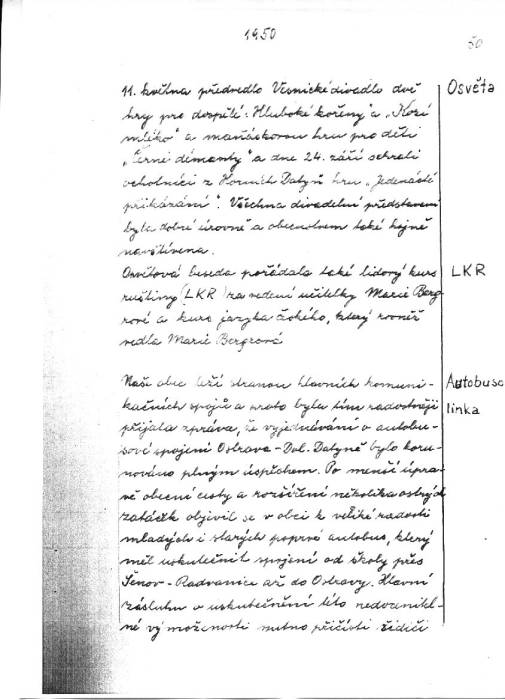 1950
50
11. května předvedlo Vesnické divadlo dvě
hry pro dospělé: „Hluboké kořeny" a „Kozí
mléko" a maňáskovou hru pro děti
„Černé démanty" a dne 24. září sehráli
ochotníci z Horních Datyň hru „Jedenácté
přikázání". Všechna divadelní představení
byla dobré úrovně a obecenstvem také hojně
navštívena.
Osvětová beseda pořádala také lidový kurs
ruštiny (LKR) za vedení učitelky Marie Berg
rové a kurs jazyka českého, který rovněž
vedla Marie Bergrová
Naše obec leží stranou hlavních komuni-
kačních spojů a proto byla tím radostněji
přijata zpráva, že vyjednávání o autobu-
sové spojení Ostrava-Dol. Datyně bylo koru-
nováno plným úspěchem. Po menší úpra-
vě obecní cesty a rozšíření několika ostrých
zatáček objevil se v obci k veliké radosti
mladých i starých poprvé autobus, který
měl uskutečnit spojení od školy přes
Šenov-Radvanice až do Ostravy. Hlavní
zásluhu o uskutečnění této nedocenitel-
né vymoženosti nutno přičísti řidiči
Osvěta
LKR
Autobuso
linka